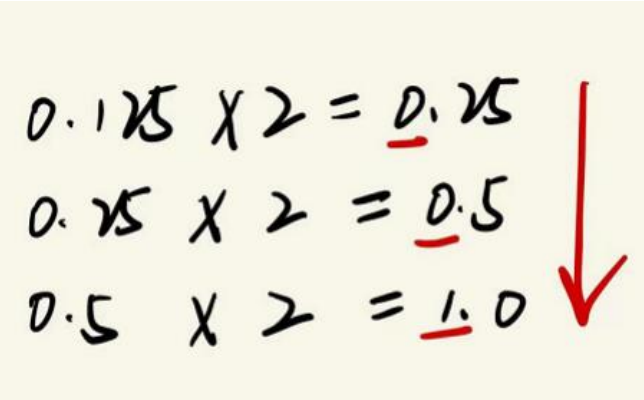 0.125 × 2 = 0.25
0.25 × 2 = 0.5
0.5 × 2 = 1.0